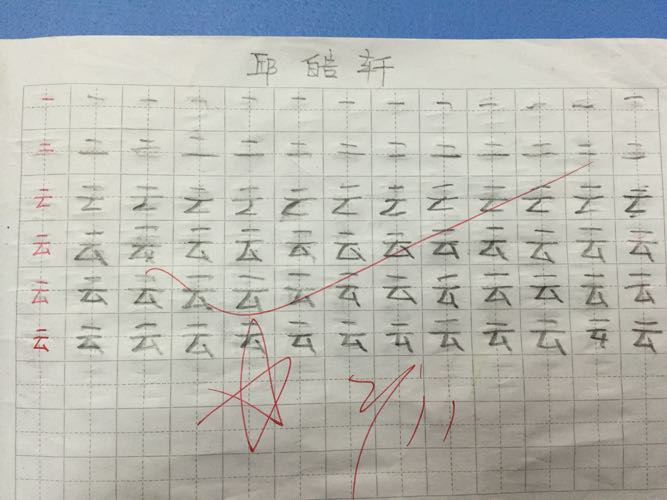 邱皓轩
一 一 一 一 一 一 一 一 一 一 一 一 一
二 二 二 二 二 二 二 二 二 二 二 二 二
云 云 云 云 云 云 云 云 云 云 云 云 云
云 云 云 云 云 云 云 云 云 云 云 云 云
云 云 云 云 云 云 云 云 云 云 云 云 云